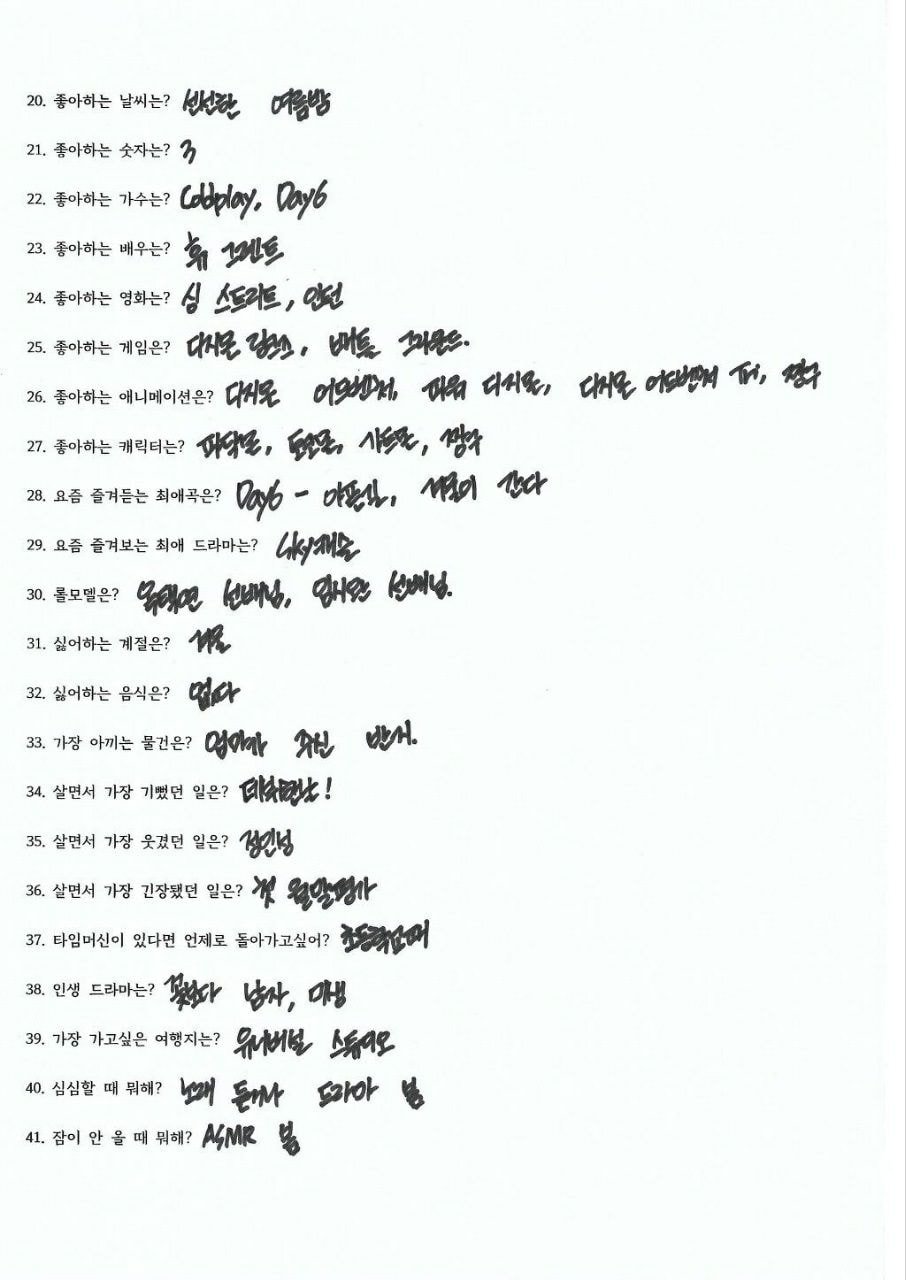 20. 좋아하는 날씨는? 선선한 여름밤
21. 좋아하는 숫자는? 3
22. 좋아하는 가수는? Coldplay, Day6
23. 좋아하는 배우는? 휴 그랜트
24. 좋아하는 영화는? 싱 스트리트, 인턴
25. 좋아하는 게임은? 디지몬 링크스, 배틀 그라운드.
26. 좋아하는 애니메이션은? 디지몬 어드벤처, 파워 디지몬, 디지몬 어드벤처 tri, 짱구
27. 좋아하는 캐릭터는? 파닥몬, 쉬라몬, 짱구
28. 요즘 즐겨듣는 최애곡은? Day6 - 아픈길, 겨울이 간다
29. 요즘 즐겨보는 최애 드라마는? Sky캐슬
30. 롤모델은? 옥택연 선배님, 임시완 선배님.
31. 싫어하는 계절은? 겨울
32. 싫어하는 음식은? 없다
33. 가장 아끼는 물건은? 엄마가 주신 반지.
34. 살면서 가장 기뻤던 일은? 데뷔한날!
35. 살면서 가장 웃겼던 일은? 정인성
36. 살면서 가장 긴장됐던 일은? 첫 월말평가
37. 타임머신이 있다면 언제로 돌아가고싶어? 초등학교때
38. 인생 드라마는? 꽃보다 남자, 미생
39. 가장 가고싶은 여행지는? 유니버셜 스튜디오
40. 심심할 때 뭐해? 노래 듣거나 드라마 봄
41. 잠이 안 올 때 뭐해? ASMR 봄